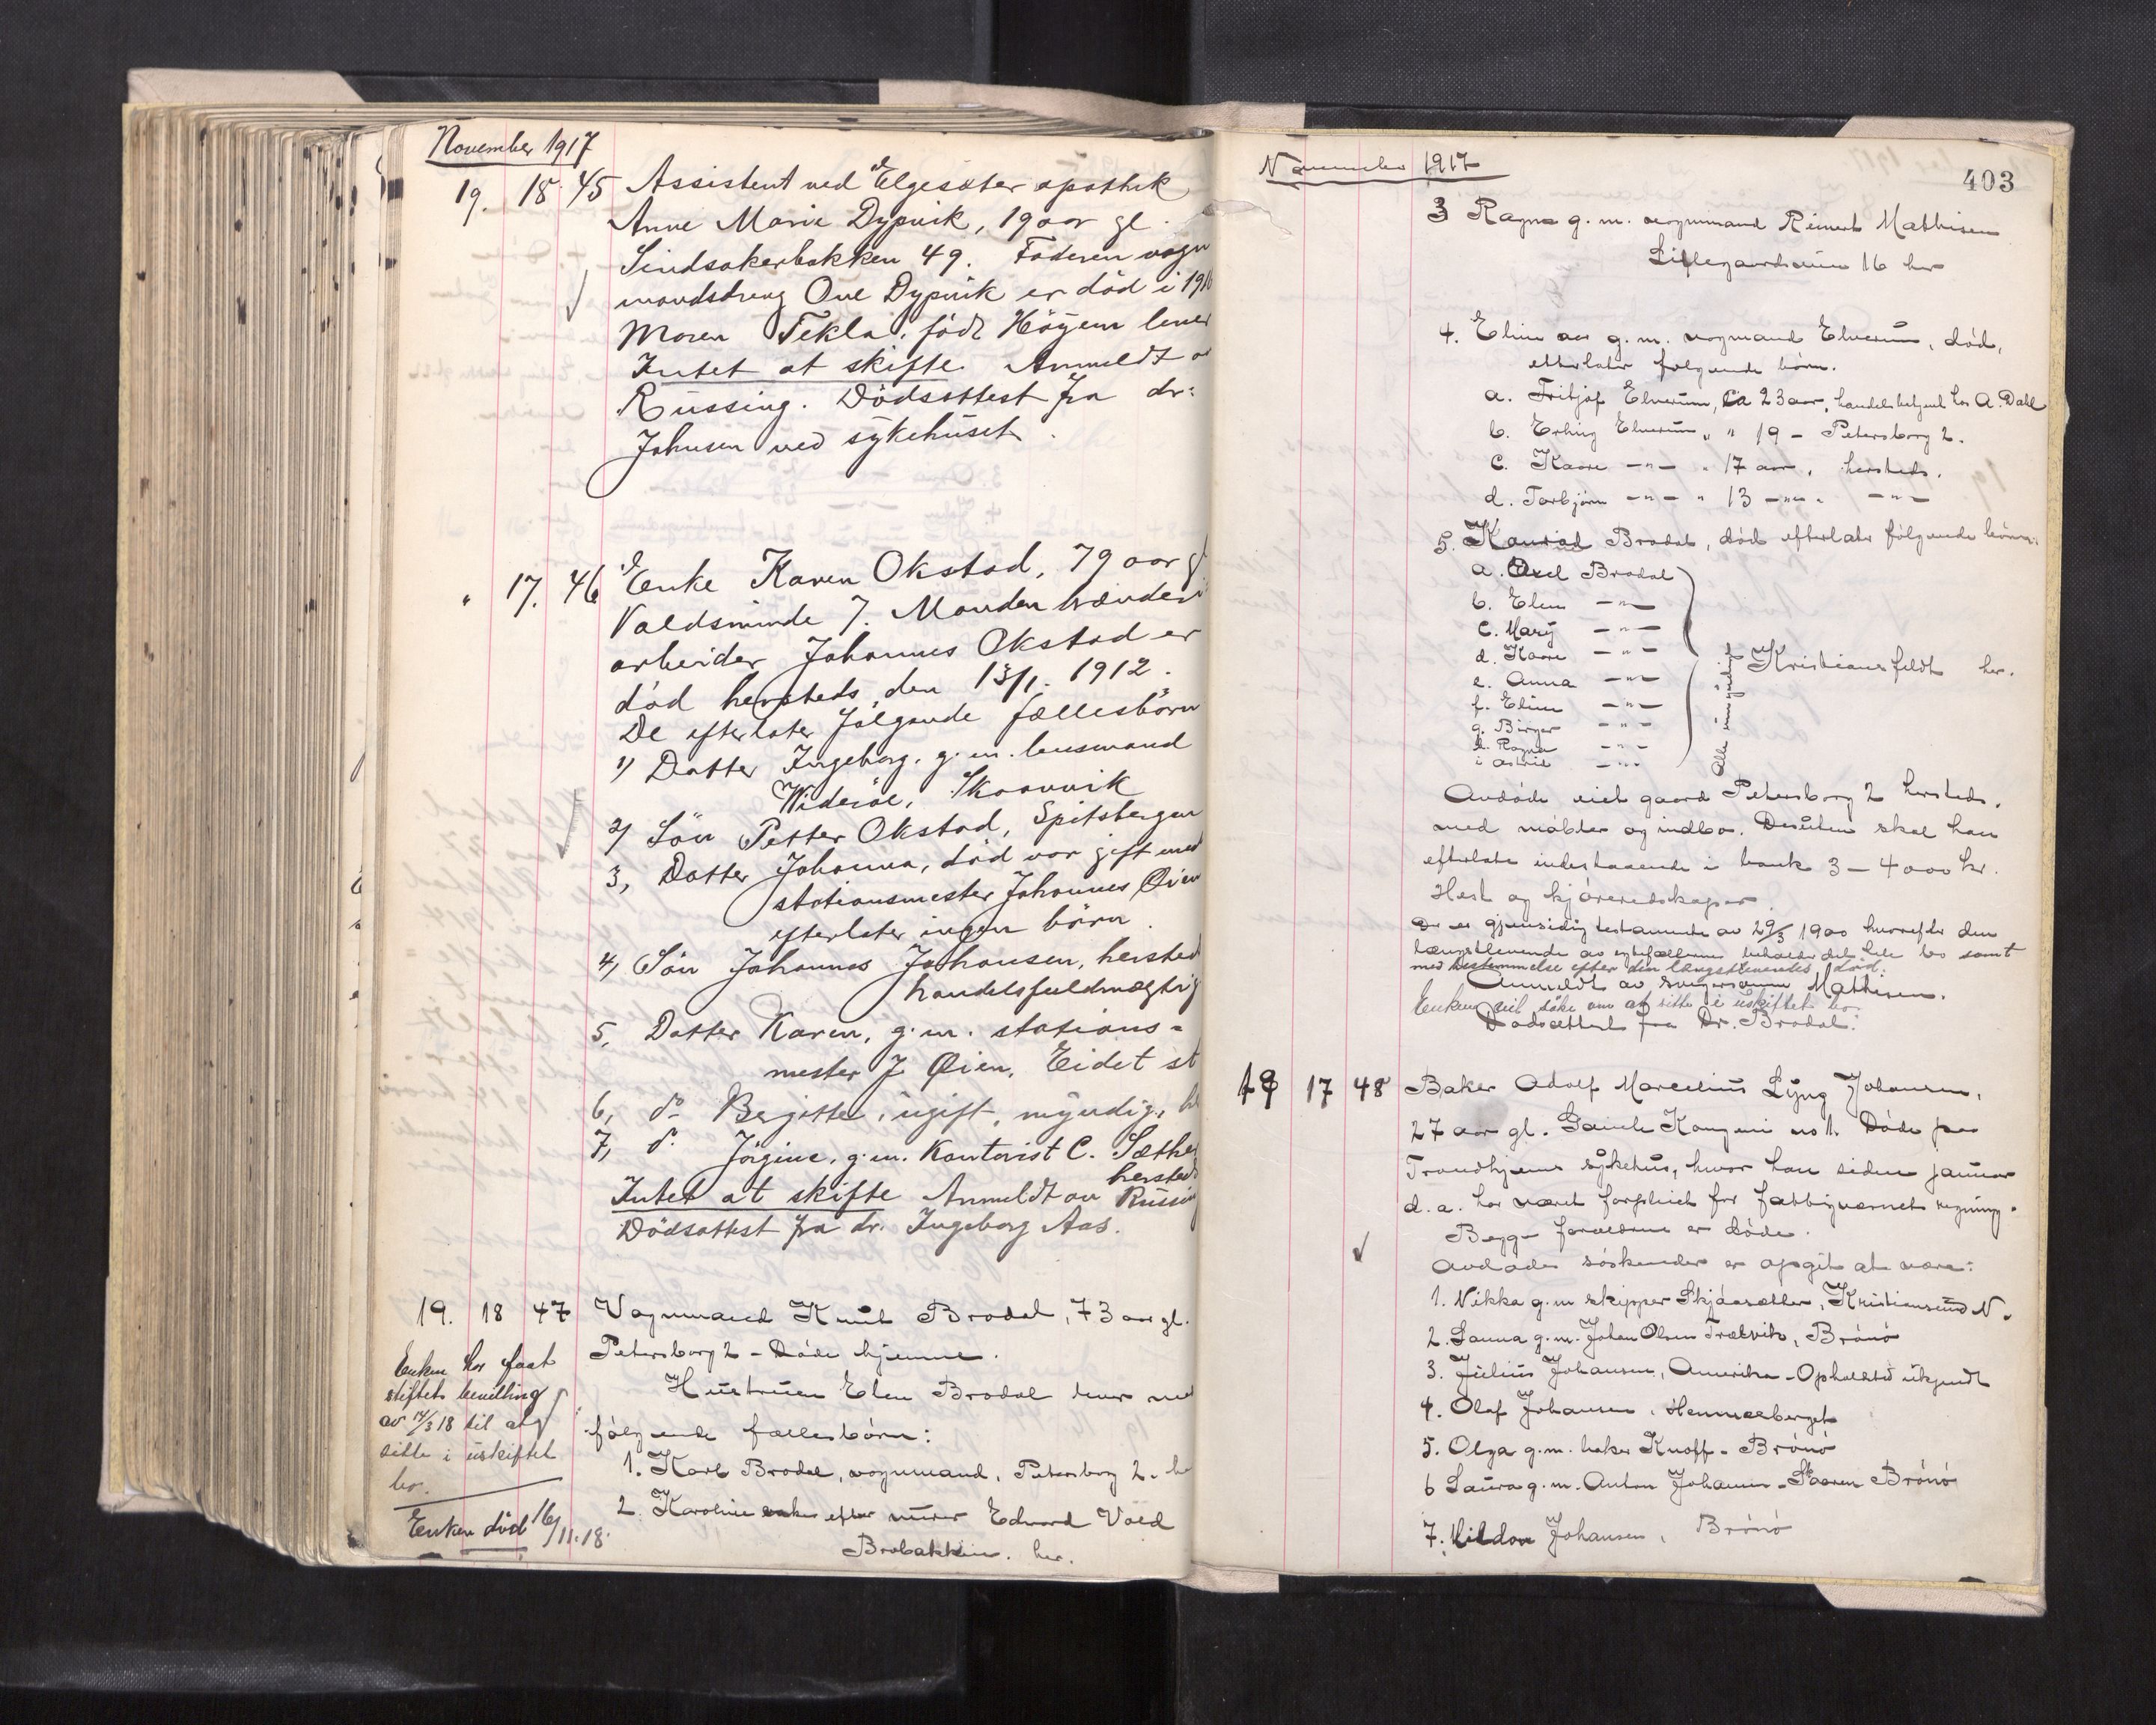 November 1917
19. 18. 45 Assistent ved Elgesæter apothek
Anne Marie Dypvik, 19 aar gl.
Sindsakerbakken 49. Faderen vogn
mandsdreng Ove Dypvik er död i 191
Moren Tekla, föd Höyem lever
Intet at skifte. Anmeldt
Russing. Dödsattest fra dr:
Johnsen ved sykehuset.
" 17. 46 Enke Karen Okstad, 79 aar gl
Valdsminde 7. Manden
arbeider Johannes Okstad er
död hersteds den 13/1. 1912.
De efterlater fölgende fællesbörn
1) Datter Ingeborg, g. m. lensmand
Wideröe, Skaanvik
2) Sön Petter Okstad, Spitsbergen
3, Datter Johanna, död var gift med
stationsmester Johannes Öien
efterlater ingen börn.
4, Sön Johannes Johansen, hersted
handelsfuldmægtig
5, Datter Karen, g. m. stations-
mester J. Öien, Eidet st
6, do Bergitte, ugift, myndig, h
7, do Jörgine, g. m. Kontorist C. Sæther
hersteds
Intet at skifte Anmeldt av Russing
Dödsattest fra dr. Ingeborg Aas.
19. 18 47 Vognmand Knut Brodal, 73 aar gl.
Petersborg 2 - Döde hjemme.
Hustruen Elen Brodal lever med
fölgende fællesbörn:
1. Karl Brodal, vognmand, Petersborg 2. he
2. Karoline enke efter murer Edvard Vold
Brobakken. her.
Enken har faat
stiftets bevilling
av 14/3 18 til at
sitte i uskiftet
bo.
Enken död 16/11.18.
November 1917
403
3 Ragna g. m. vognmand Reinert Mathisen
Lillegaardsveien 16 her
4. Elina var g. m. vognmand Elverum, död,
efterlater fölgende börn.
a. Fritjof Elverum, ca 23 aar, handelsbetjent hos A. Dahl
b. Erling Elverum " " 19 - Petersborg 2.
c. Kaare -"- " 17 aar, hersteds.
d. Torbjörn -"- " 13 -"- -"-
5. Konrad Brodal, död efterlater fölgende börn:
a. Axel Brodal
b. Elen -"-
c. Mary -"-
d. Kaare -"-
e. Anna -"-
f. Elina -"-
g. Birger -"-
h. Ragna -"-
i Astrid -"-
Alle umyndige
Kristiansfeldt her.
Avdöde eiet gaard Petersborg 2 hersteds.
med möbler og indbo. Desuten skal han
efterlate indestaaende i bank 3 - 4000 kr.
Hest og kjöreredskaper.
Der er gjensidig testamente av 29/3 1900 hvorefter den
længstlevende av egtefællerne beholder det hele bo samt
med bestemmelse efter den længstlevendes död.
Anmeldt av svigersønn Mathisen.
Enken vil söke om at sitte i uskiftet bo.
Dødsattest fra Dr. Brodal.
19 17 48 Baker Adolf Marcelius Lyng Johansen,
27 aar gl. Gamle Kongevei no 1. Döde paa
Trondhjems sykehus, hvor han siden januar
d. a. har været forpleiet for fattigvæsnets regning.
Begge forældrene er döde.
Avdödes söskender er opgit at være:
1. Vikka g. m skipper Skjåsætter, Kristiansund N.
2. Sanna g. m. Johan Olsen Trælvik, Brönö
3. Julius Johansen, Amerika - Opholdsted ukjendt
4. Olaf Johansen, Hammelberget
5. Olga g. m. baker Knoff - Brönö
6 Laura g. m. Anton Johansen - Saaren Brönö
7. Hildor Johansen, Brönö